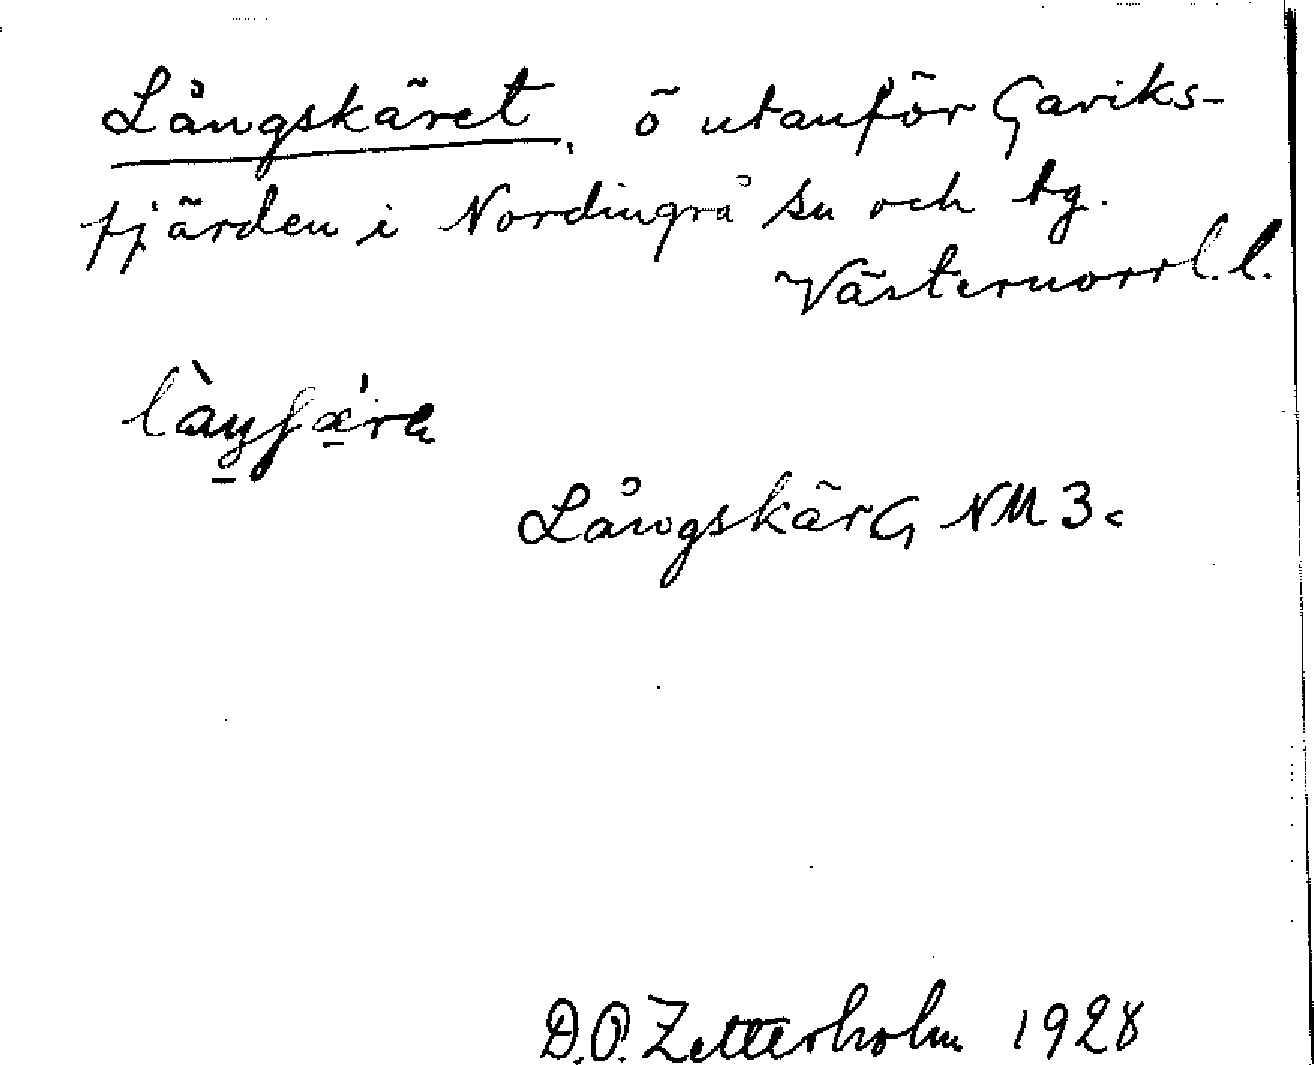 Långskäret, ö utanför Gaviks-
fjärden i Nordingrå sn och tg.
Västernorrl. l.
Långskär G NM 3c
D.O. Zetterholm 1928